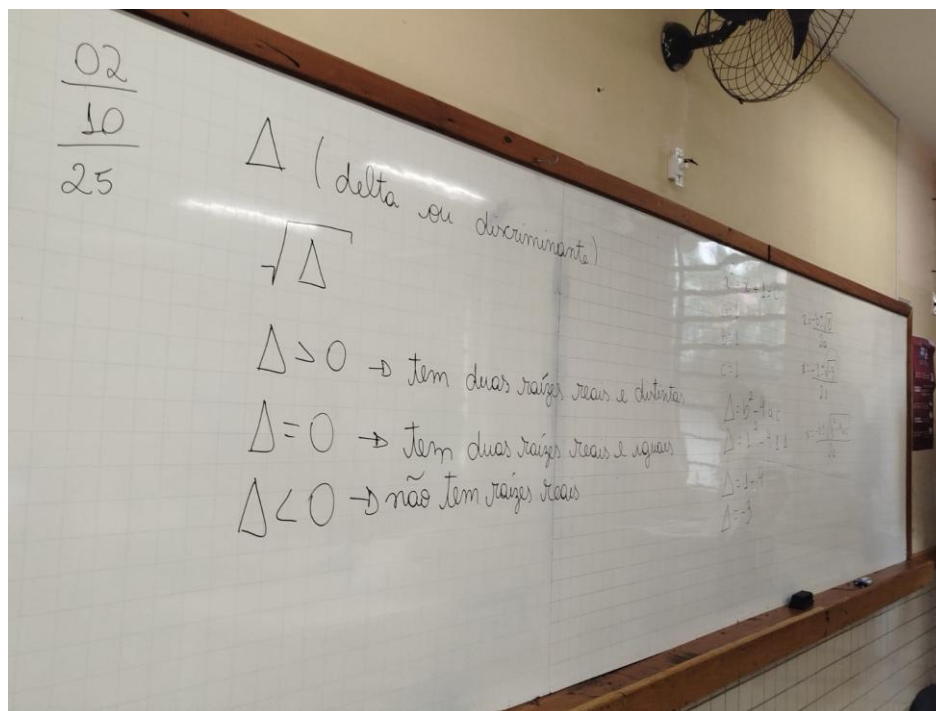 02
10
25
Δ (delta ou discriminante)
√Δ
Δ > 0 → tem duas raízes reais e distintas
Δ = 0 → tem duas raízes reais e iguais
Δ < 0 → não tem raízes reais
c = 1
Δ = b² - 4ac
Δ = 1² - 4 1 1
Δ = 1 - 4
Δ = -3